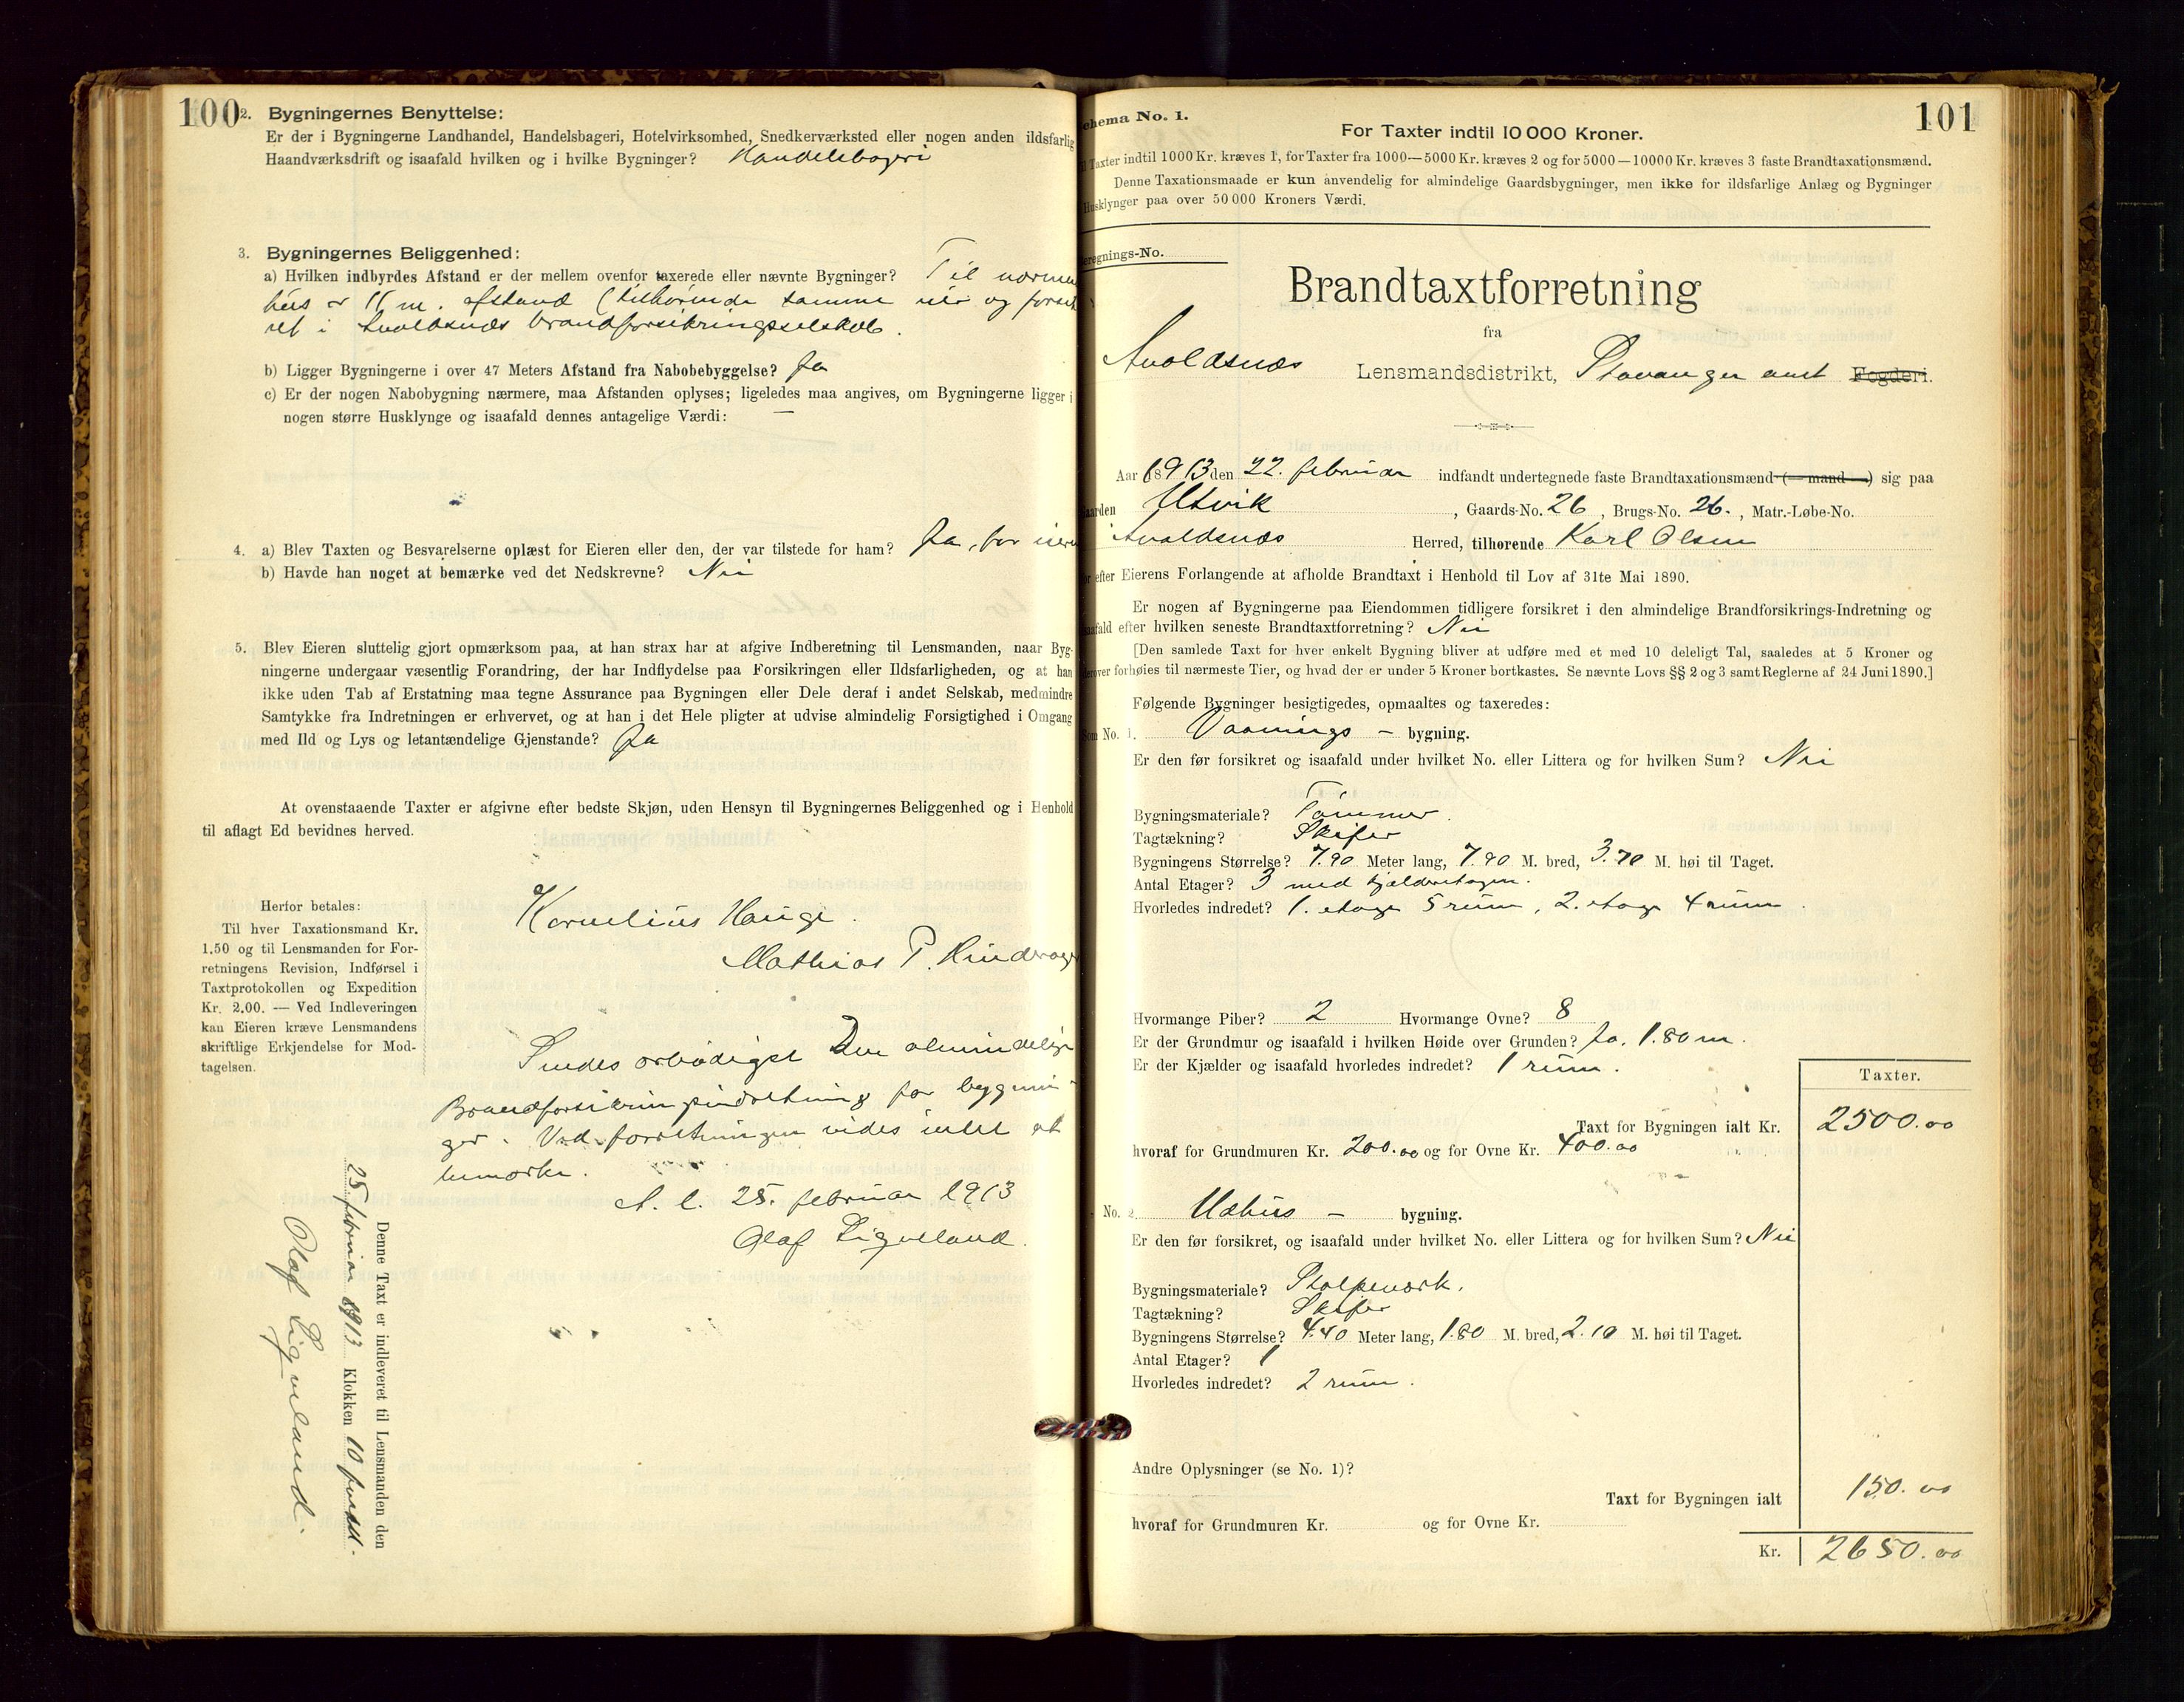 100
2. Bygningernes Benyttelse:
Er der i Bygningerne Landhandel, Handelsbageri, Hotelvirksomhed, Snedkerværksted eller nogen anden ildsfarlig
Haandværksdrift og isaafald hvilken og i hvilke Bygninger? Handelsbageri
3. Bygningernes Beliggenhed:
a) Hvilken indbyrdes Afstand er der mellem ovenfor taxerede eller nævnte Bygninger? Til
hus er 11 m. afstand (tilhørende samme eier og
ret i Avaldsnæs brandforsikringsselskab.
b) Ligger Bygningerne i over 47 Meters Afstand fra Nabobebyggelse? Ja
c) Er der nogen Nabobygning nærmere, maa Afstanden oplyses; ligeledes maa angives, om Bygningerne ligger i
nogen større Husklynge og isaafald dennes antagelige Værdi: —
4. a) Blev Taxten og Besvarelserne oplæst for Eieren eller den, der var tilstede for ham? Ja, for
b) Havde han noget at bemærke ved det Nedskrevne? Nei
5. Blev Eieren sluttelig gjort opmærksom paa, at han strax har at afgive Indberetning til Lensmanden, naar Byg-
ningerne undergaar væsentlig Forandring, der har Indflydelse paa Forsikringen eller Ildsfarligheden, og at han
ikke uden Tab af Erstatning maa tegne Assurance paa Bygningen eller Dele deraf i andet Selskab, medmindre
Samtykke fra Indretningen er erhvervet, og at han i det Hele pligter at udvise almindelig Forsigtighed i Omgang
med Ild og Lys og letantændelige Gjenstande? Ja
At ovenstaaende Taxter er afgivne efter bedste Skjøn, uden Hensyn til Bygningernes Beliggenhed og i Henhold
til aflagt Ed bevidnes herved.
Herfor betales:
Til hver Taxationsmand Kr.
1.50 og til Lensmanden for For-
retningens Revision, Indførsel i
Taxtprotokollen og Expedition
Kr. 2.00. — Ved Indleveringen
kan Eieren kræve Lensmandens
skriftlige Erkjendelse for Mod-
tagelsen.
Kornelius Hauge.
Mathias P.
Sendes ærbødigst Den almindelige
Brandforsikringsindretning for bygnin-
ger. Ved forretningen vides intet at
bemerke.
A. l. 25. februar 1913
Olaf Eigeland.
Denne Taxt er indleveret til Lensmanden den
25 februar 1913 Klokken 10 form.
Olaf Eigeland.
101
Schema No. 1.
For Taxter indtil 10 000 Kroner.
Til Taxter indtil 1000 Kr. kræves 1, for Taxter fra 1000—5000 Kr. kræves 2 og for 5000—10000 Kr. kræves 3 faste Brandtaxationsmænd.
Denne Taxationsmaade er kun anvendelig for almindelige Gaardsbygninger, men ikke for ildsfarlige Anlæg og Bygninger
Husklynger paa over 50 000 Kroners Værdi.
eregnings-No.
Brandtaxtforretning
fra
Avaldsnæs Lensmandsdistrikt, Stavanger amt Fogderi.
Aar 1913 den 22. februar indfandt undertegnede faste Brandtaxationsmænd (— mand —) sig paa
Gaarden Utvik, Gaards-No. 26, Brugs-No. 26., Matr.-Løbe-No.
Avaldsnæs Herred, tilhørende Karl Olsen
for efter Eierens Forlangende at afholde Brandtaxt i Henhold til Lov af 31te Mai 1890.
Er nogen af Bygningerne paa Eiendommen tidligere forsikret i den almindelige Brandforsikrings-Indretning og
isaafald efter hvilken seneste Brandtaxtforretning? Nei
[Den samlede Taxt for hver enkelt Bygning bliver at udføre med et med 10 deleligt Tal, saaledes at 5 Kroner og
derover forhøies til nærmeste Tier, og hvad der er under 5 Kroner bortkastes. Se nævnte Lovs §§ 2 og 3 samt Reglerne af 24 Juni 1890.]
Følgende Bygninger besigtigedes, opmaaltes og taxeredes:
Som No. 1. Vaanings – bygning.
Er den før forsikret og isaafald under hvilket No. eller Littera og for hvilken Sum? Nei
Bygningsmateriale? Tømmer.
Tagtækning? Skifer
Bygningens Størrelse? 7.90 Meter lang, 7.90 M. bred, 3.70 M. høi til Taget.
Antal Etager? 3 med kjælderetagen.
Hvorledes indredet? 1. etage 5 rum, 2. etage 4 rum.
Hvormange Piber? 2 Hvormange Ovne? 8
Er der Grundmur og isaafald i hvilken Høide over Grunden? Ja. 1.80 m.
Er der Kjælder og isaafald hvorledes indredet? 1 rum.
Taxter.
Taxt for Bygningen ialt Kr. 2500.00
hvoraf for Grundmuren Kr. 200.00 og for Ovne Kr. 400.00
No. 2. Udhus – bygning.
Er den før forsikret, og isaafald under hvilket No. eller Littera og for hvilken Sum? Nei
Bygningsmateriale? Stolpeverk.
Tagtækning? Skifer
Bygningens Størrelse? 4.40 Meter lang, 1.80 M. bred, 2.10 M. høi til Taget.
Antal Etager? 1
Hvorledes indredet? 2 rum.
Andre Oplysninger (se No. 1)?
Taxt for Bygningen ialt 150.00
hvoraf for Grundmuren Kr. og for Ovne Kr.
Kr. 2650.00